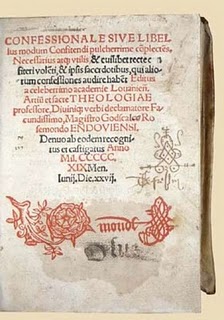 CONFESSIONALE SIVE LIBEL
lus modum Confitendi pulcherrime cõplectẽs,
Necessarius atqȝ vtilis & cuilibet recte cõ
fiteri volẽti, & ipsis sacerdotibus, qui alio-
rum confessiones audire habẽt Editus
a celeberrimo academie Louanieñ.
Artiũ et sacre THEOLOGIAE
professore, Diuiniqȝ verbi declamatore Fa
cundissimo, Magistro Godscalco Ro
semondo ENDOVIENSI,
Denuo ab eodem recogni
tus et castigatus Anno
Mil. CCCCC,
XIX Men.
Iunij. Die. xxvij.